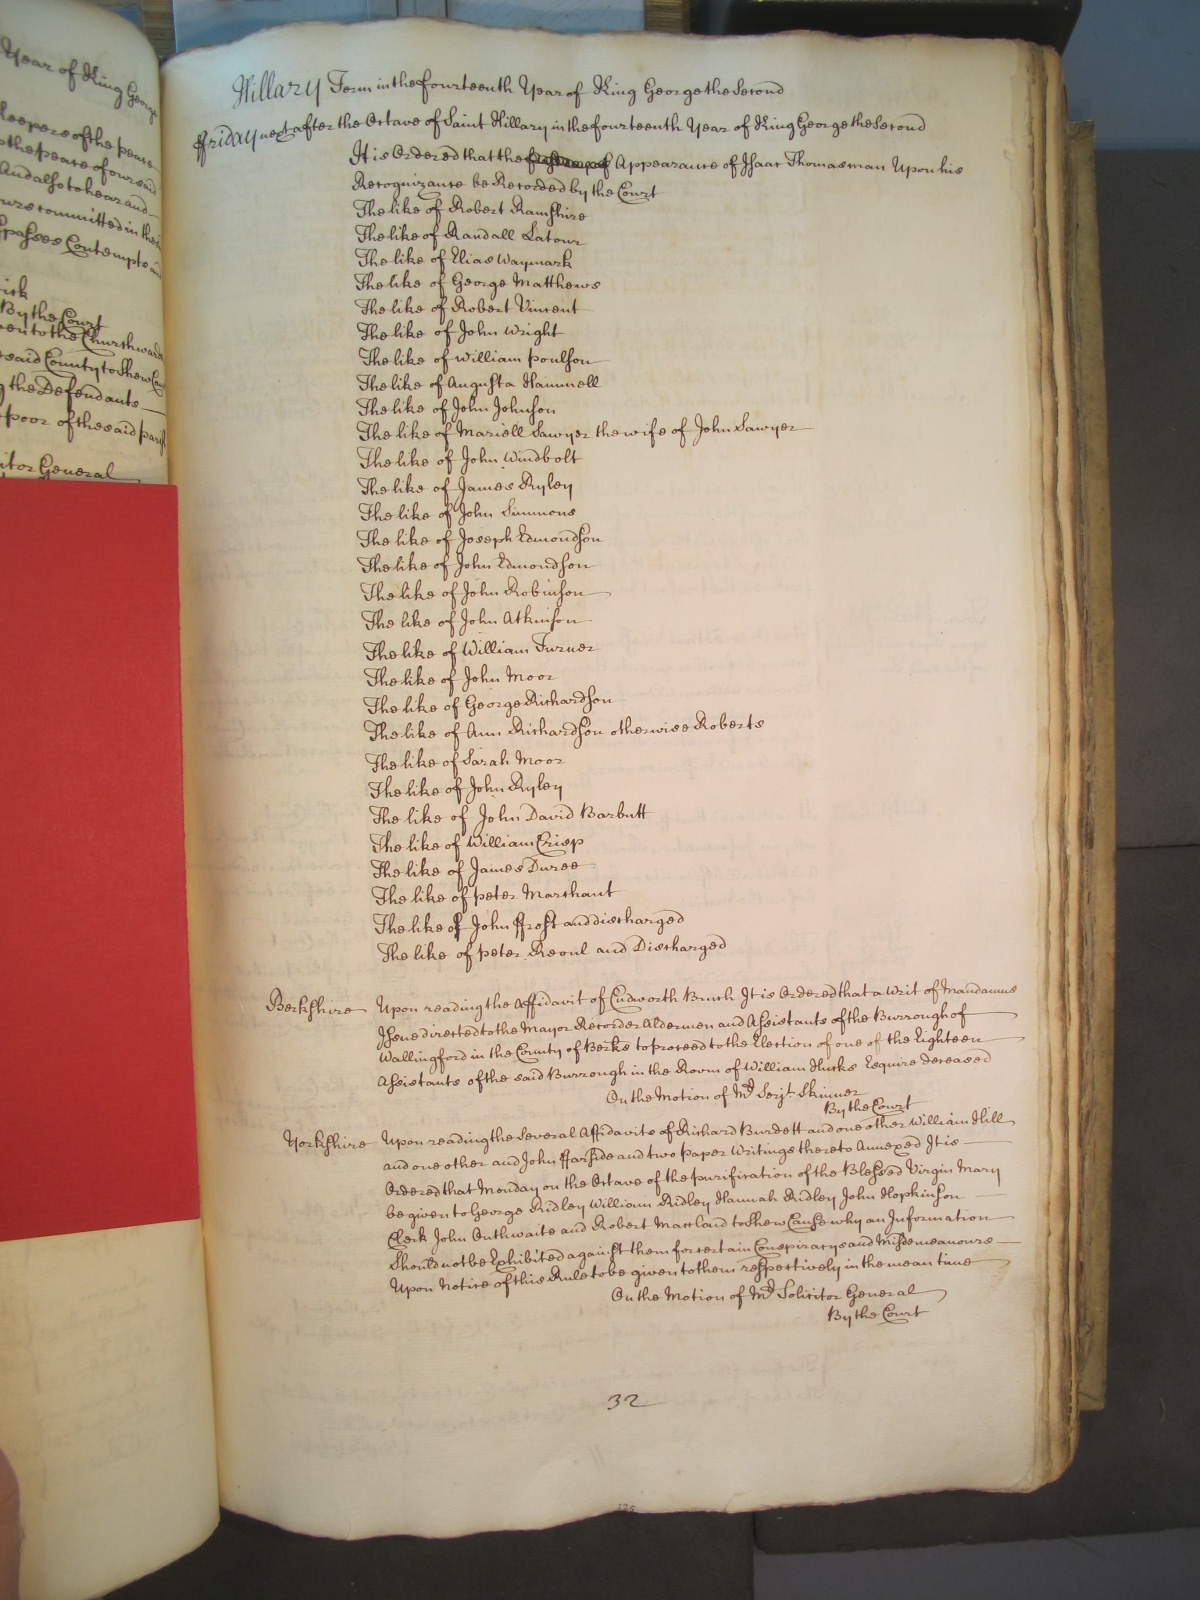 Year of King George
Keepers of the peace
the peace of our said
And also to hear and
ours committed in the
passes Contempts and
By the Court
en to the Churchwardens
said County to Shew Cause
the Defendants
poor of the said parish
itor General
Hillary Term in the fourteenth Year of King George the Second
ffriday next after the Octave of Saint Hillary in the fourteenth Year of King George the Second
It is Ordered that the Appearance of Isaac Thomasman Upon his
Recognizance be Recorded by the Court
The like of Robert Ramshire
The like of Randall Latour
The like of Elias Waymark
The like of George Matthews
The like of Robert Vincent
The like of John Wright
The like of William Poulson
The like of Augusta Hammell
The like of John Johnson
The like of Mariell Sawyer the wife of John Sawyer
The like of John Windbolt
The like of James Ryley
The like of John Simmons
The like of Joseph Edmondson
The like of John Edmondson
The like of John Robinson
The like of John Atkinson
The like of William Turner
The like of John Moor
The like of George Richardson
The like of Ann Richardson otherwise Roberts
The like of Sarah Moor
The like of John Ryley
The like of John David Barbutt
The like of William Crisp
The like of James Duree
The like of peter Marchant
The like of John ffrost and discharged
The like of peter Reoul and Discharged
Berkshire Upon reading the Affidavit of Cudworth Bruch It is Ordered that a Writ of Mandamus
Issue directed to the Mayor Recorder Aldermen and Assistants of the Burrough of
Wallingford in the County of Berks to proceed to the Election of one of the Eighteen
Assistants of the said Burrough in the Room of William Hucks Esquire deceased
On the Motion of Mr Serjt Skinner
By the Court
Yorkshire Upon reading the Several Affidavits of Richard Burdett and one other William Hill
and one other and John ffarside and two paper Writings thereto Annexed It is
Ordered that Monday on the Octave of the purification of the Blessed Virgin Mary
be given to George Ridley William Ridley Hannah Ridley John Hopkinson
Clerk John Outhwaite and Robert Martland to Shew Cause why an Information
Should not be Exhibited against them for certain Conspiracys and Misdemeanours
Upon Notice of this Rule to be given to them respectively in the mean time
On the Motion of Mr Solicitor General
By the Court
32